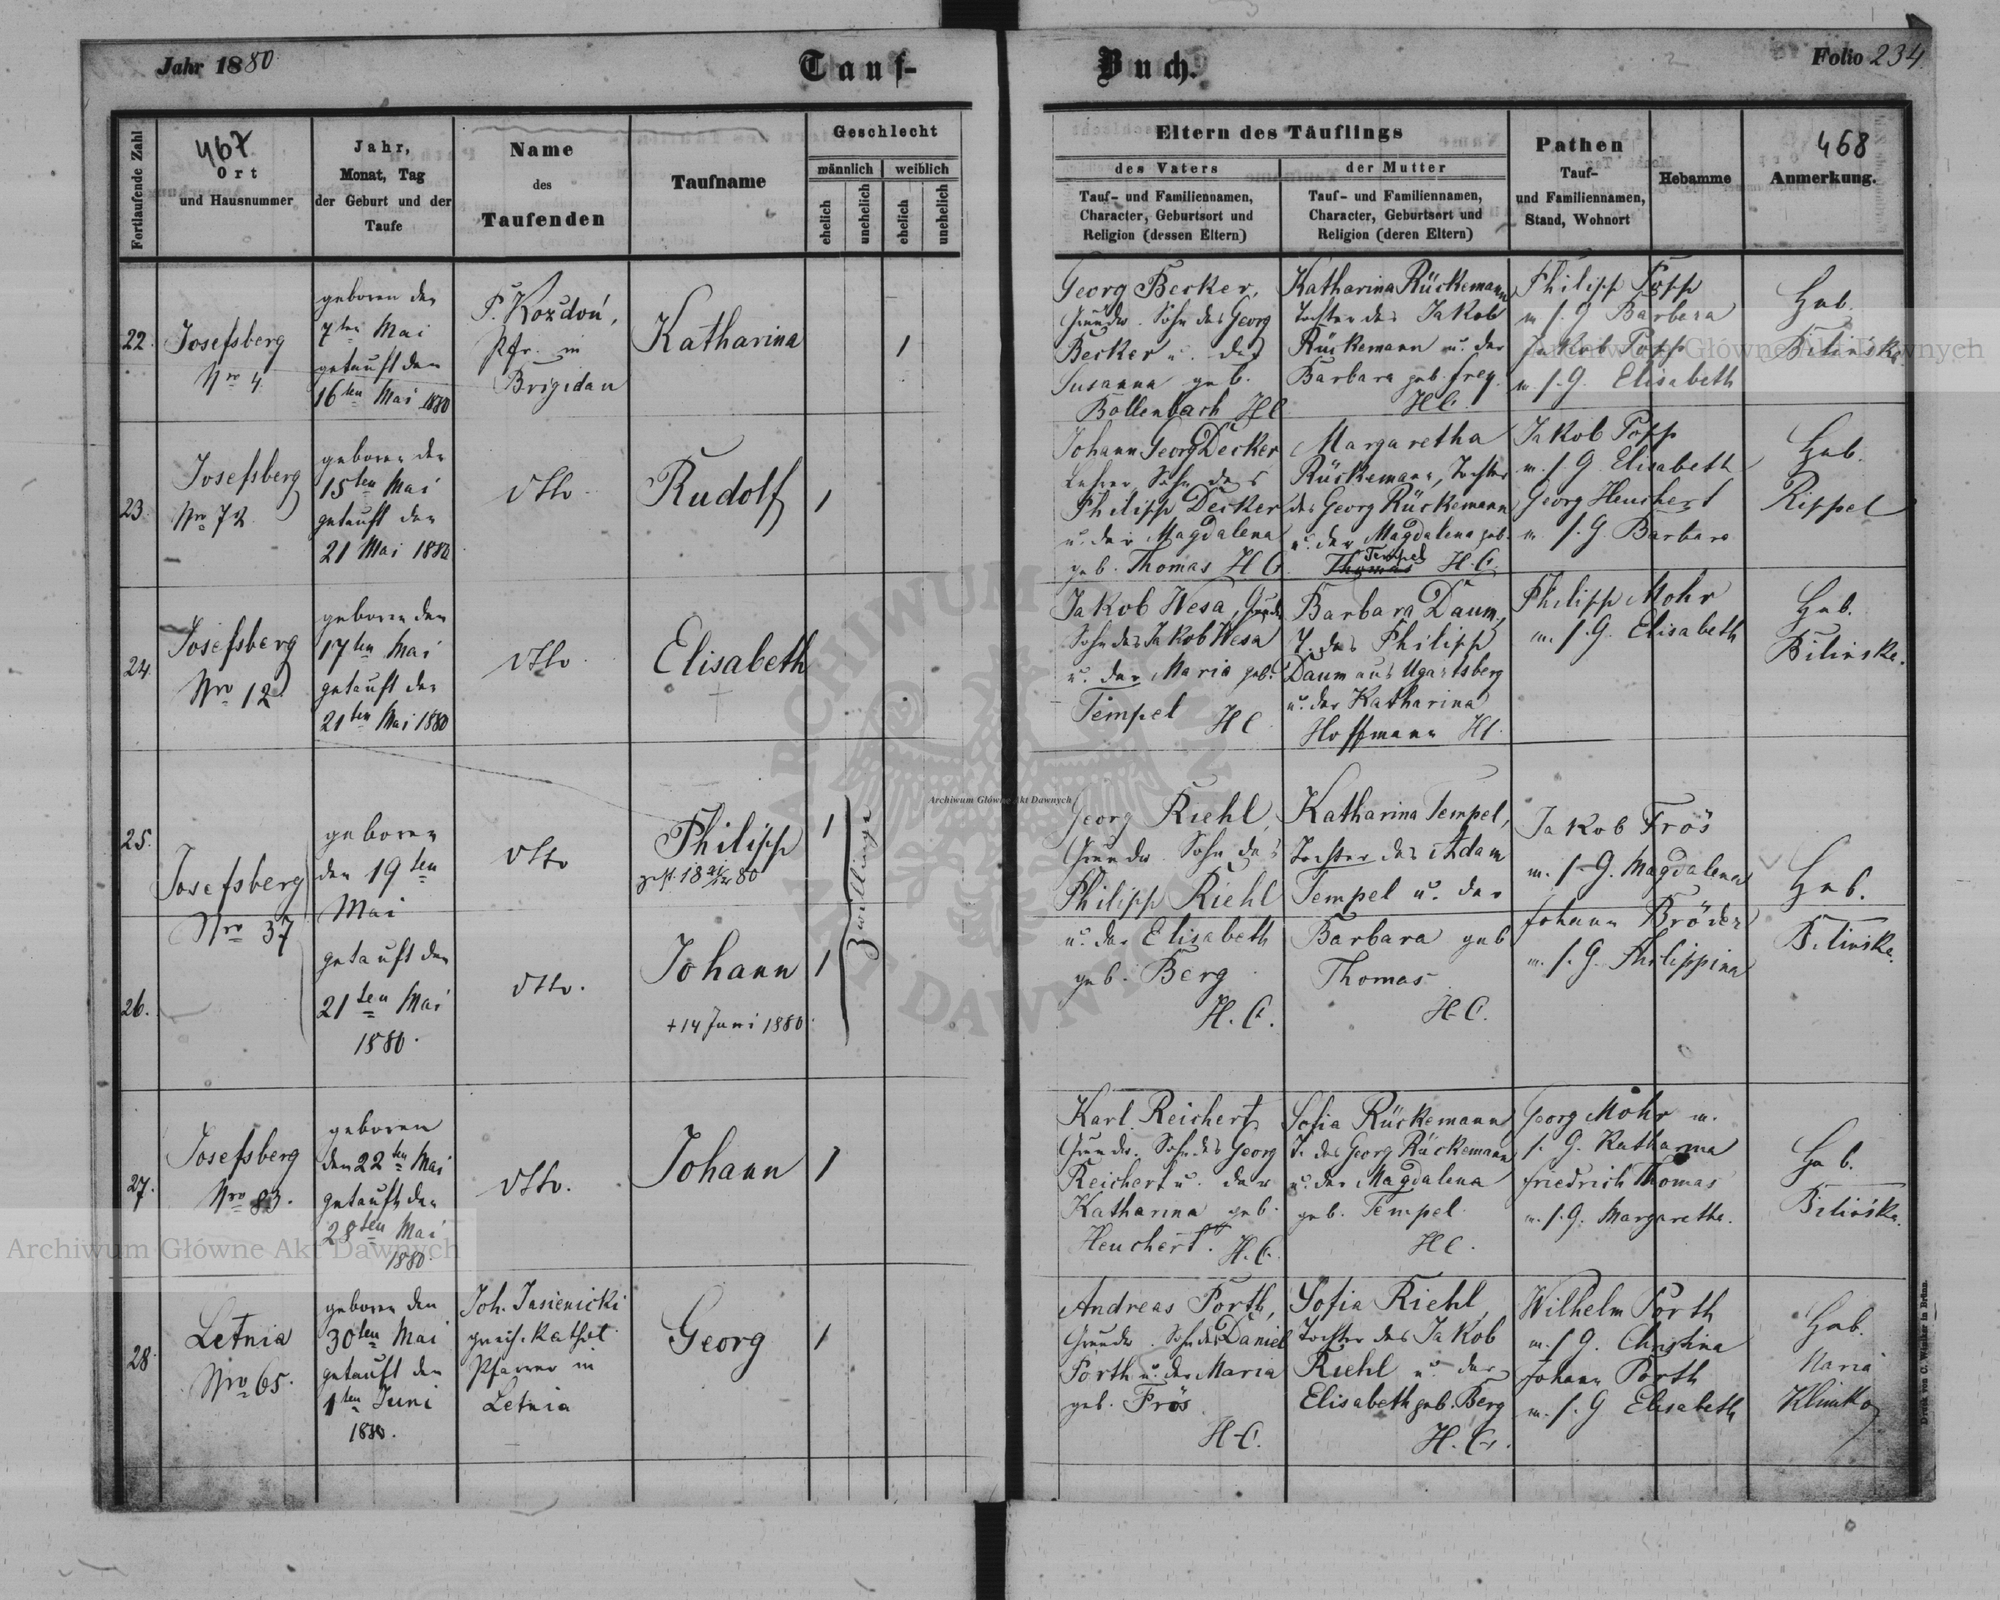 Jahr 1880
Tauf-
Buch.
Folio 234
Fortlaufende Zahl
467
Ort
und Hausnummer
Jahr,
Monat, Tag
der Geburt und der
Taufe
Name
des
Taufenden
Taufname
Geschlecht
männlich
weiblich
ehelich
unehelich
ehelich
unehelich
Eltern des Täuflings
des Vaters
der Mutter
Tauf- und Familiennamen,
Character, Geburtsort und
Religion (dessen Eltern)
Tauf- und Familiennamen,
Character, Geburtsort und
Religion (deren Eltern)
Pathen
Tauf-
und Familiennamen,
Stand, Wohnort
Hebamme
468
Anmerkung.
22.
Josefsberg
Nro 4.
geboren den
7ten Mai
getauft den
16ten Mai 1880
P. Kozdoń,
Pfr. in
Brigidau
Katharina
1
Georg Becker,
Grundw. Sohn des Georg
Becker u. der
Susanna geb.
Bollenbach HC
Katharina Rückemann
Tochter des Jakob
Rückemann u. der
Barbara geb. Frey.
HC.
Philipp Popp
m. s. G. Barbara
Jakob Popp
m. s. G. Elisabeth
Heb.
Bilinska
23.
Josefsberg
Nro 72
geboren den
15ten Mai
getauft den
21 Mai 1880
dtto.
Rudolf
1
Johann Georg Decker
Lehrer, Sohn des
Philipp Decker
u. der Magdalena
geb. Thomas H C
Margaretha
Rückemann, Tochter
des Georg Rückemann
u. der Magdalena geb.
Tempel
Thomas H. C.
Jakob Popp
m. s. G. Elisabeth
Georg Heuchert
m. s. G. Barbara
Heb.
Rippel
24.
Josefsberg
Nro 12
geboren den
17ten Mai
getauft den
21ten Mai 1880
dtto.
Elisabeth
Jakob Wesa, Grundw.
Sohn des Jakob Wesa
u. der Maria geb.
Tempel HC
Barbara Daum,
T. des Philipp
Daum aus Ugartsberg
u. der Katharina
Hoffmann HC.
Philipp Mohr
m. s. G. Elisabeth
Heb.
Bilinska.
25.
26.
Josefsberg
Nro 37
geboren
den 19ten
Mai
getauft den
21ten Mai
1880.
dtto
dtto.
Philipp
Johann
+ 14 Juni 1880.
1
1
Zwillinge
Georg Riehl,
Grundw. Sohn des
Philipp Riehl
u. der Elisabeth
geb. Berg
H. C.
Katharina Tempel,
Tochter des Adam
Tempel u. der
Barbara geb
Thomas
H.C.
Jakob Frös
m. s. G. Magdalena
Johann Bröder
m. s. G. Philippina
Heb.
Bilinska.
27.
Josefsberg
Nro 83.
geboren
den 22ten Mai
getauft den
28ten Mai
1880.
dtto.
Johann
1
Karl Reichert
Grundw. Sohn des Georg
Reichert u. der
Katharina geb.
Heuchert. H. C.
Sofia Rückemann
T. des Georg Rückemann
u. der Magdalena
geb. Tempel
HC.
Georg Mohr m.
s. G. Katharina
Friedrich Thomas
m. s. G. Margaretha.
Heb.
Bilinska.
28.
Letnia
Nro 65.
geboren den
30ten Mai
getauft den
1ten Juni
1880.
Joh. Jasienicki
griech. kathol.
Pfarrer in
Letnia
Georg
1
Andreas Porth,
Grundw. Sohn des Daniel
Porth u. der Maria
geb. Frös
H-C.
Sofia Riehl,
Tochter des Jakob
Riehl u. der
Elisabeth geb. Berg
H. C.
Wilhelm Porth
m. s. G. Christina
Johann Porth
m. s. G Elisabeth
Heb.
Maria
Klimko
Druck von C. Winiker in Brünn.
Archiwum Główne Akt Dawnych
Archiwum Główne Akt Dawnych
Archiwum Główne Akt Dawnych